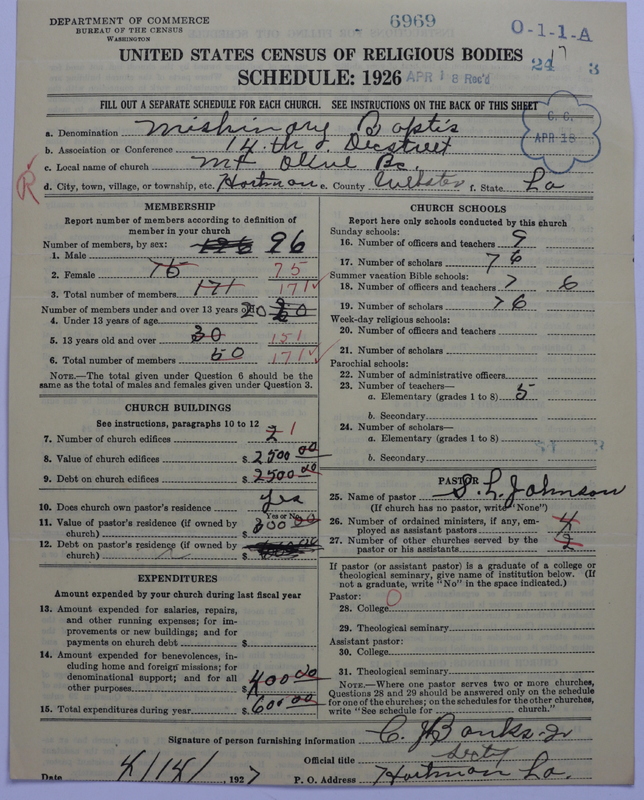 DEPARTMENT OF COMMERCE
BUREAU OF THE CENSUS
WASHINGTON
6969
O-1-1-A
17
24 3
UNITED STATES CENSUS OF RELIGIOUS BODIES
SCHEDULE: 1926
APR 18 Rec'd
FILL OUT A SEPARATE SCHEDULE FOR EACH CHURCH. SEE INSTRUCTIONS ON THE BACK OF THIS SHEET
C. C.
APR 18
a. Denomination Mishinary Baptis
b. Association or Conference 14th Decstreet
c. Local name of church Mt Olive Bc.
R
d. City, town, village, or township, etc. Hortman e. County Webster f. State La
MEMBERSHIP
Report number of members according to definition of member in your church
Number of members, by sex:
1. Male 126 96
2. Female 75 75
3. Total number of members 171 171
Number of members under and over 13 years old:
4. Under 13 years of age 20
5. 13 years old and over 30 151
6. Total number of members 50 171
NOTE.—The total given under Question 6 should be the same as the total of males and females given under Question 3.
CHURCH BUILDINGS
See instructions, paragraphs 10 to 12
7. Number of church edifices 2 1
8. Value of church edifices $ 2500 00
9. Debt on church edifices $ 2500 00
10. Does church own pastor's residence yes
Yes or No
11. Value of pastor's residence (if owned by church) $ 300 00
12. Debt on pastor's residence (if owned by church) $
EXPENDITURES
Amount expended by your church during last fiscal year
13. Amount expended for salaries, repairs, and other running expenses; for improvements or new buildings; and for payments on church debt $
14. Amount expended for benevolences, including home and foreign missions; for denominational support; and for all other purposes $ 400 00
15. Total expenditures during year $ 600 00
CHURCH SCHOOLS
Report here only schools conducted by this church
Sunday schools:
16. Number of officers and teachers 9
17. Number of scholars 76
Summer vacation Bible schools:
18. Number of officers and teachers 7 6
19. Number of scholars 76
Week-day religious schools:
20. Number of officers and teachers
21. Number of scholars
Parochial schools:
22. Number of administrative officers
23. Number of teachers—
a. Elementary (grades 1 to 8) 5
b. Secondary
24. Number of scholars—
a. Elementary (grades 1 to 8)
b. Secondary
PASTOR
25. Name of pastor S. L. Johnson
(If church has no pastor, write "None")
26. Number of ordained ministers, if any, employed as assistant pastors 4
27. Number of other churches served by the pastor or his assistants 2
If pastor (or assistant pastor) is a graduate of a college or theological seminary, give name of institution below. (If not a graduate, write "No" in the space indicated.)
Pastor: 0
28. College
29. Theological seminary
Assistant pastor:
30. College
31. Theological seminary
NOTE.—Where one pastor serves two or more churches, Questions 28 and 29 should be answered only on the schedule for one of the churches; on the schedules for the other churches, write "See schedule for church."
Signature of person furnishing information C. J. Banks. Jr
Official title
Date 4/14/, 1927 P. O. Address Hortman La.